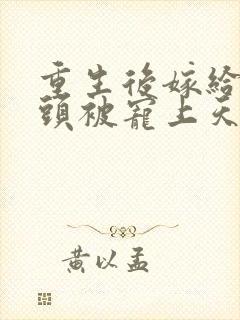 重生後嫁給
頭被寵上天
黃以孟